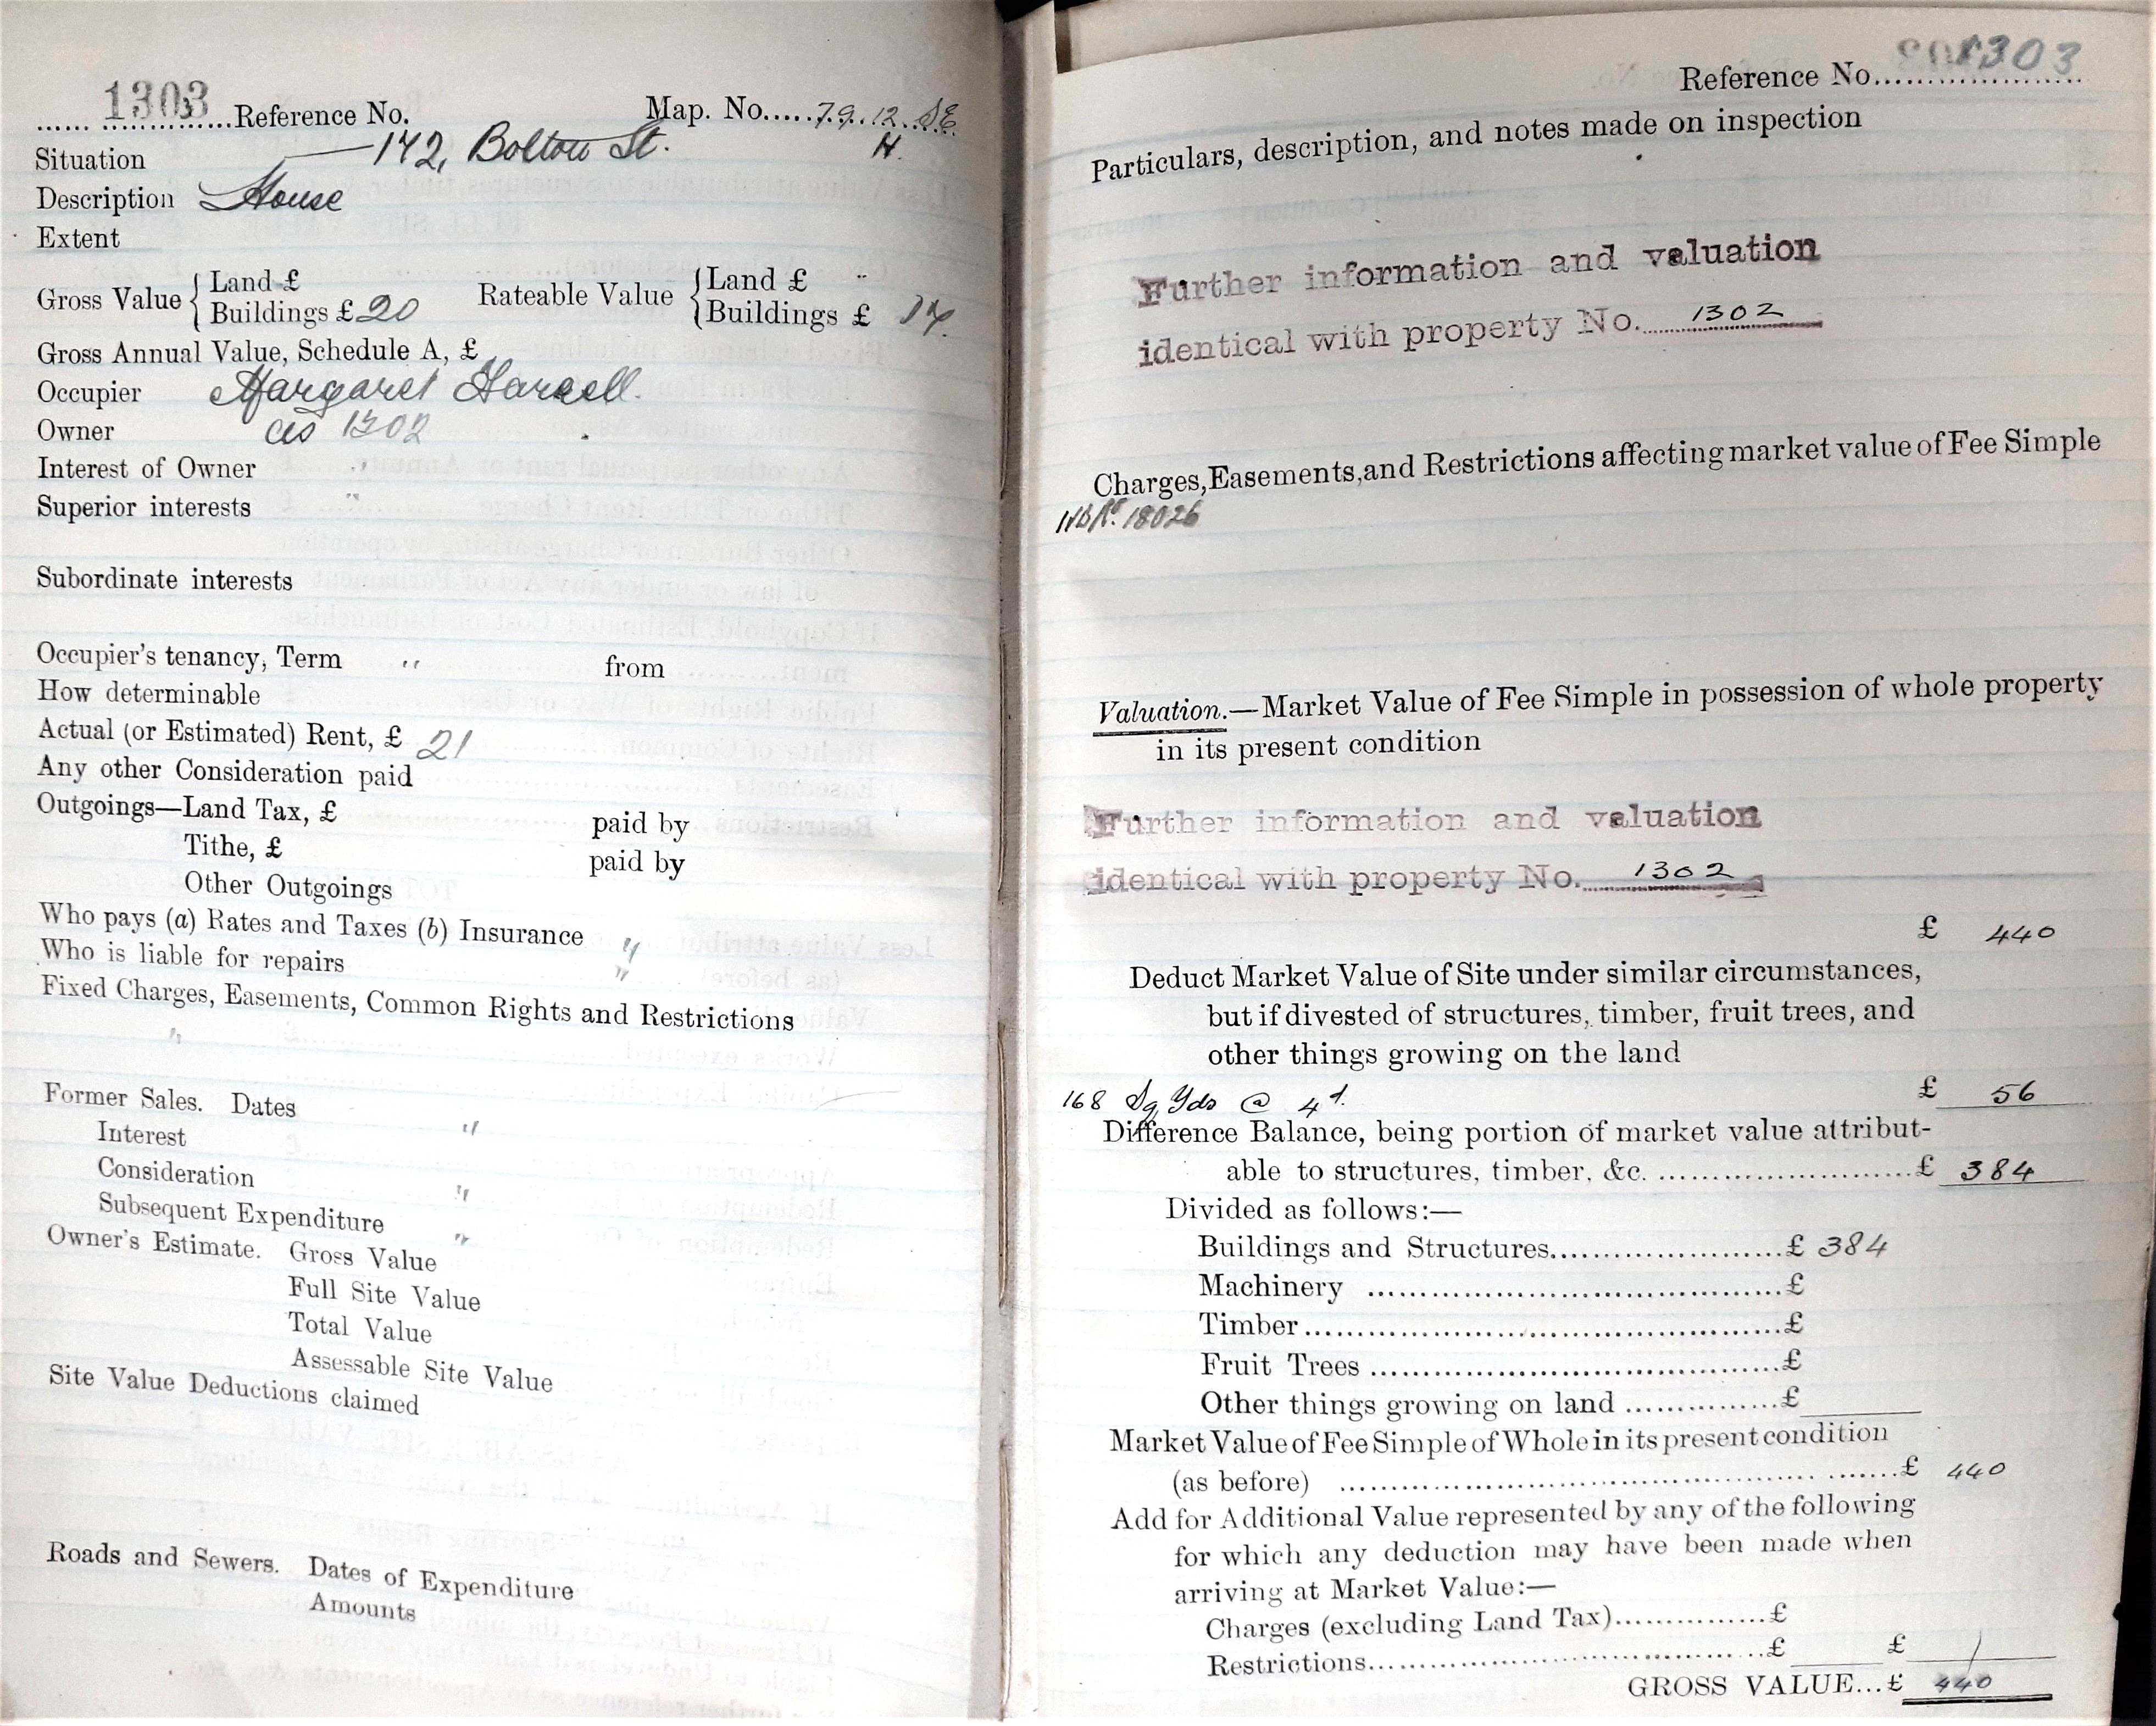 1303 Reference No. Map. No. 79.12.SE
Situation 142, Bolton St. H.
Description House
Extent
Gross Value { Land £ Rateable Value { Land £ "
Buildings £ 20 Buildings £
Gross Annual Value, Schedule A, £
Occupier Margaret
Owner as 1302
Interest of Owner "
Superior interests "
Subordinate interests
Occupier's tenancy, Term " from
How determinable
Actual (or Estimated) Rent, £ 21
Any other Consideration paid
Outgoings—Land Tax, £ paid by
Tithe, £ paid by
Other Outgoings
Who pays (a) Rates and Taxes (b) Insurance "
Who is liable for repairs "
Fixed Charges, Easements, Common Rights and Restrictions
"
Former Sales. Dates "
Interest
Consideration "
Subsequent Expenditure "
Owner's Estimate. Gross Value
Full Site Value
Total Value
Assessable Site Value
Site Value Deductions claimed
Roads and Sewers. Dates of Expenditure
Amounts
Reference No. 1303
Particulars, description, and notes made on inspection
Further information and valuation
identical with property No. 1302
Charges, Easements, and Restrictions affecting market value of Fee Simple
18026
Valuation.—Market Value of Fee Simple in possession of whole property
in its present condition
Further information and valuation
identical with property No. 1302
£ 440
Deduct Market Value of Site under similar circumstances,
but if divested of structures, timber, fruit trees, and
other things growing on the land
168 Sq Yds @ 4d. £ 56
Difference Balance, being portion of market value attribut-
able to structures, timber, &c. £ 384
Divided as follows:—
Buildings and Structures £ 384
Machinery £
Timber £
Fruit Trees £
Other things growing on land £
Market Value of Fee Simple of Whole in its present condition
(as before) £ 440
Add for Additional Value represented by any of the following
for which any deduction may have been made when
arriving at Market Value:—
Charges (excluding Land Tax) £
Restrictions £ £ /
GROSS VALUE...£ 440